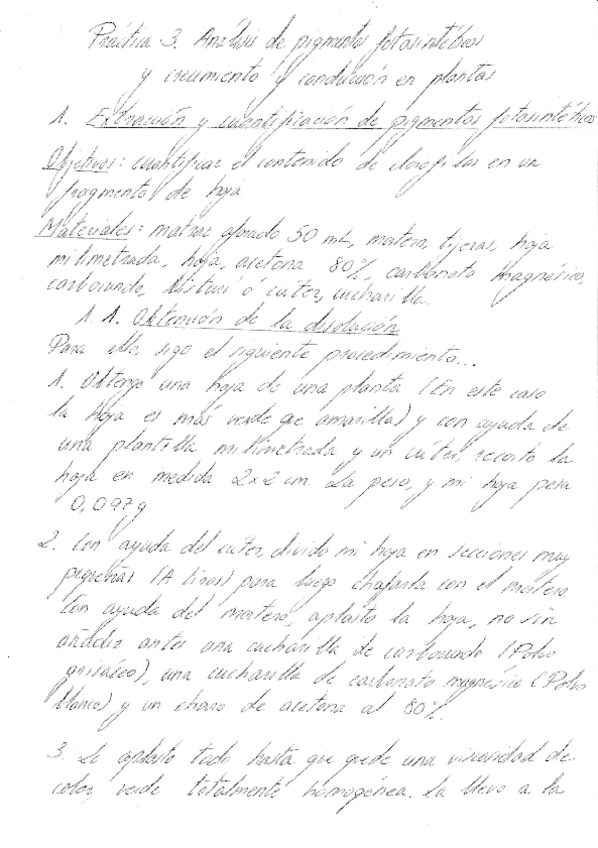 Práctica 3. Análisis de pigmentos fotosintéticos
y crecimiento y conducción en plantas
1. Extracción y cuantificación de pigmentos fotosintéticos
Objetivos: cuantificar el contenido de clorofilas en un
fragmento de hoja
Materiales: matraz aforado 50 mL, mortero, tijeras, hoja
milimetrada, hoja, acetona 80%, carbonato magnésico,
carborundo, bisturí ó cúter, cucharilla.
1.1. Obtención de la disolución
Para ello, sigo el siguiente procedimiento...
1. Obtengo una hoja de una planta (En este caso
la hoja es más verde que amarilla) y con ayuda de
una plantilla milimetrada y un cúter, recorto la
hoja en medida 2x2 cm. La peso, y mi hoja pesa
0,097g
2. Con ayuda del cúter, divido mi hoja en secciones muy
pequeñas (A tiras) para luego chafarla con el mortero
Con ayuda del mortero, aplasto la hoja, no sin
añadir antes una cucharilla de carborundo (Polvo
grisáceo), una cucharilla de carbonato magnésico (Polvo
blanco) y un chorro de acetona al 80%.
3. Lo aplasto todo hasta que quede una viscosidad de
color verde totalmente homogénea. La llevo a la